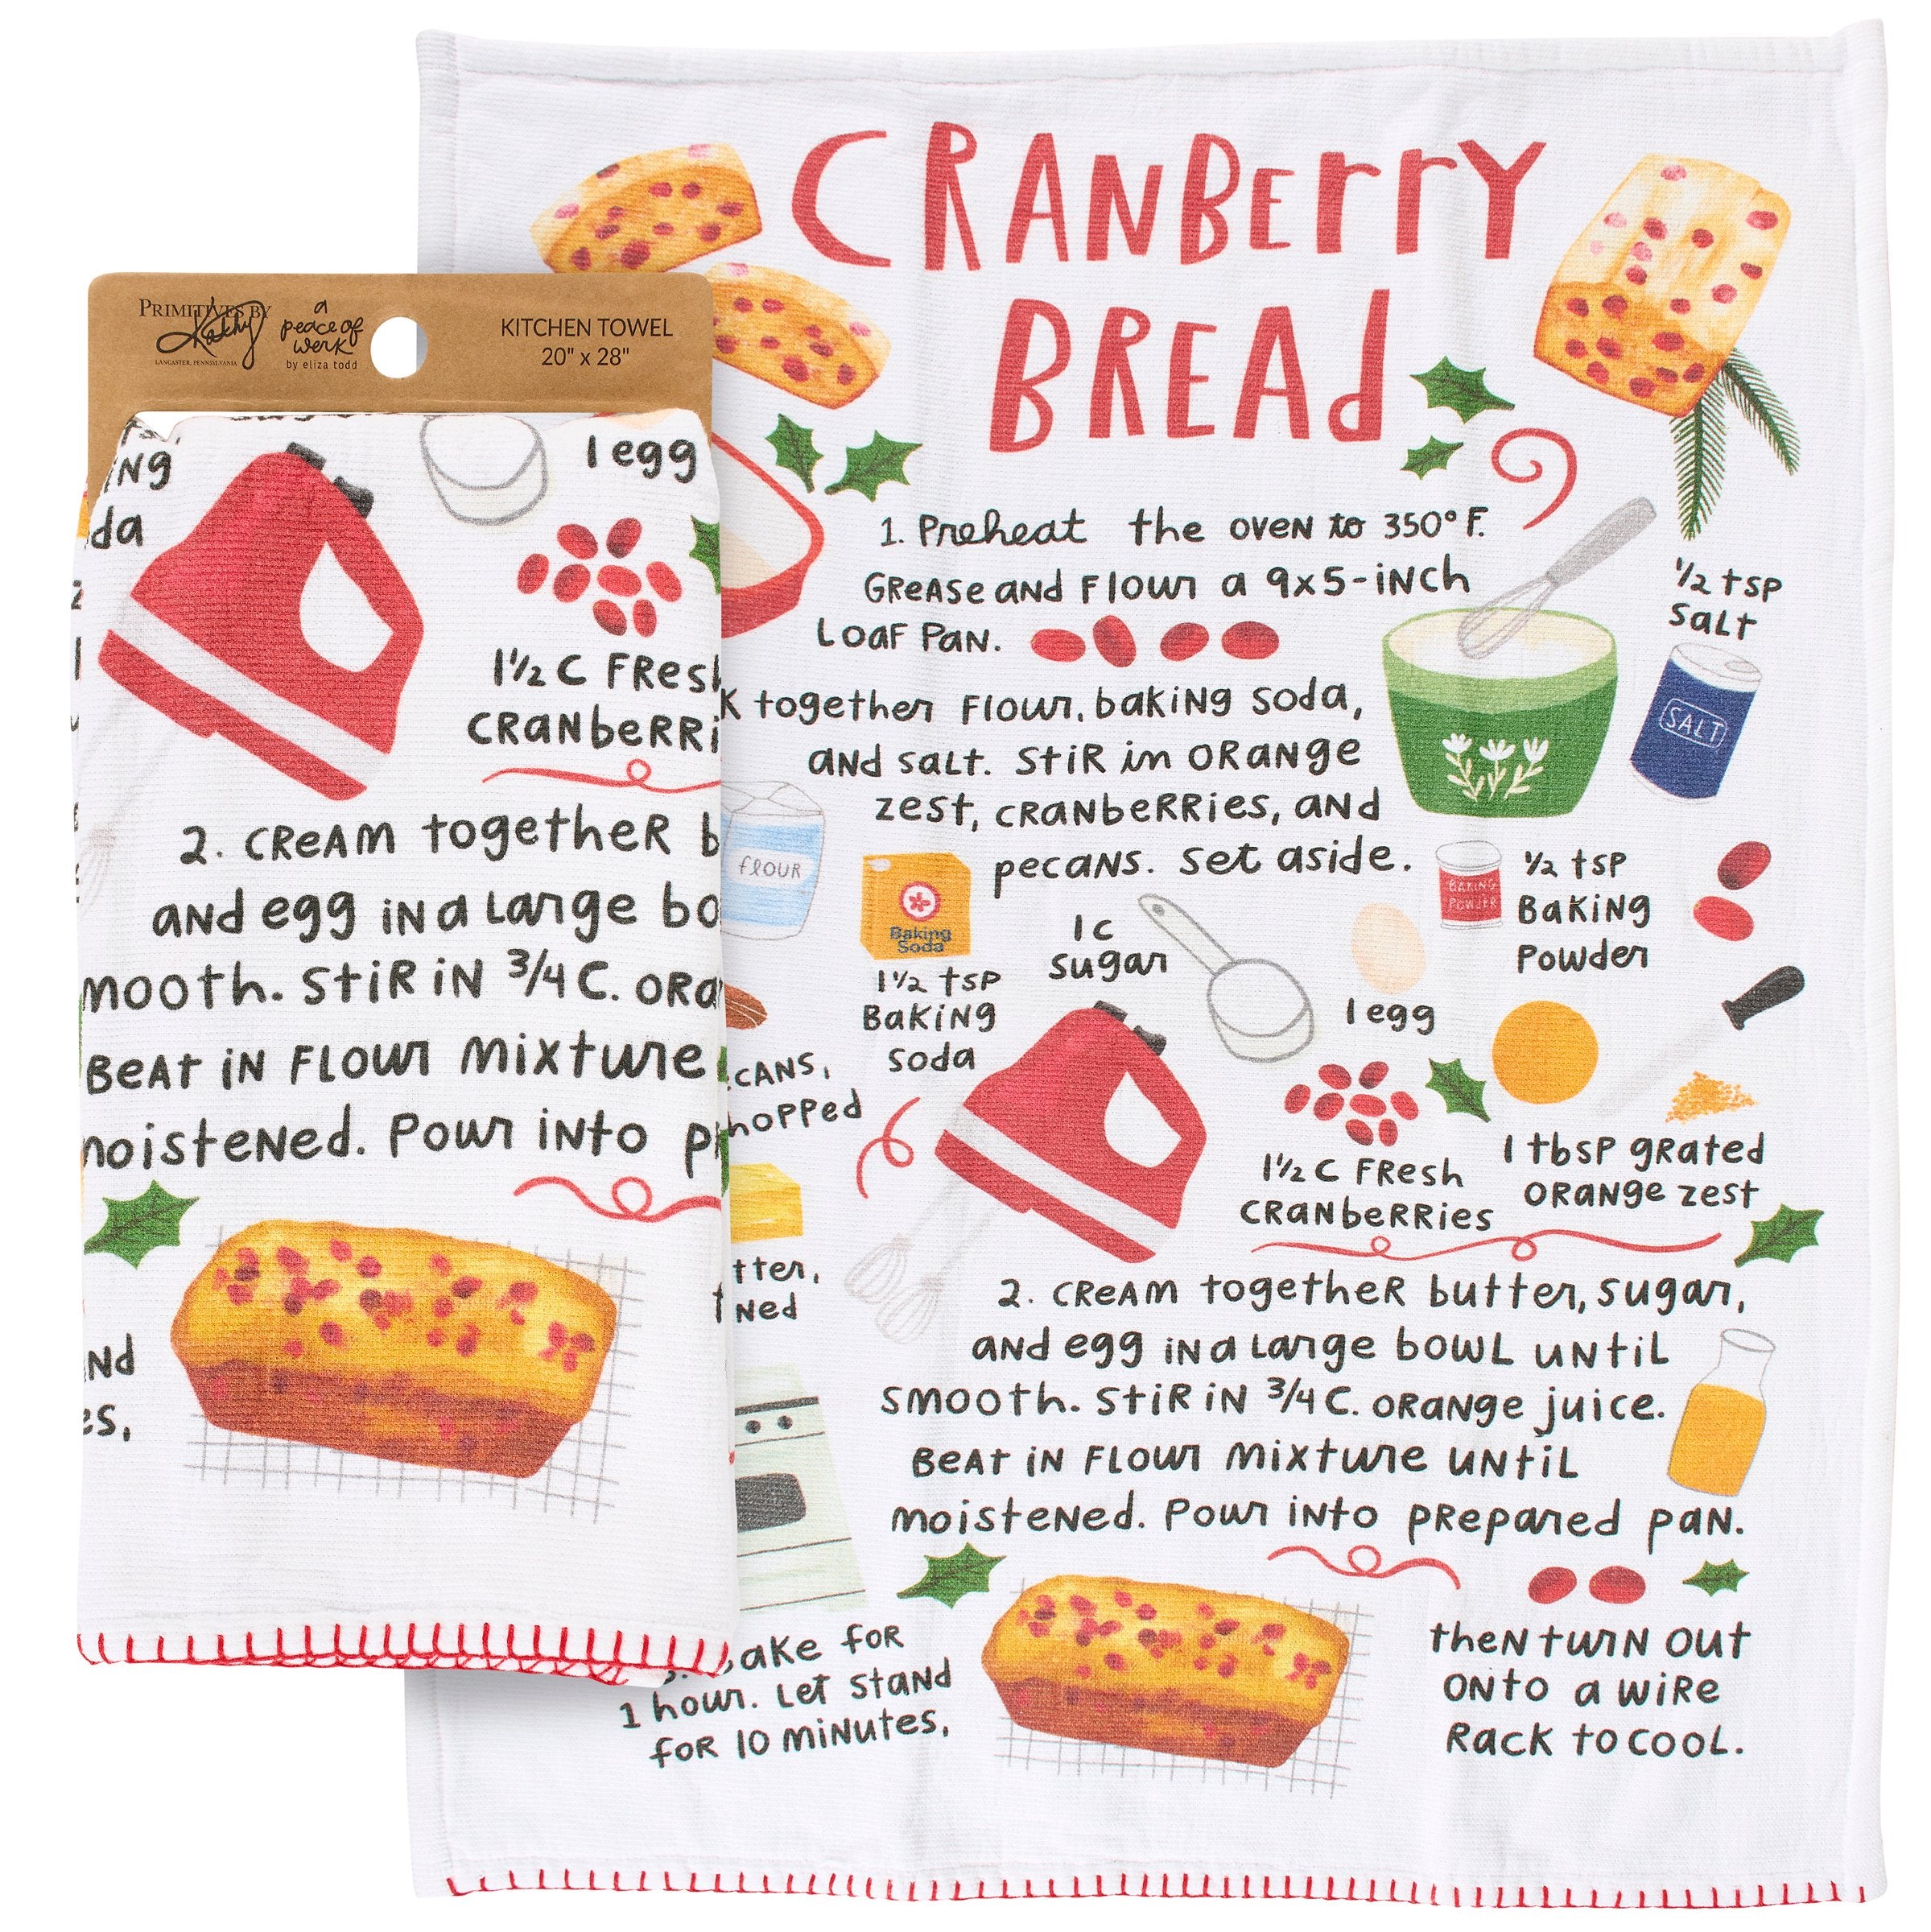 PRIMITIVES BY
Kathy
LANCASTER, PENNSYLVANIA
a
peace of
werk
by eliza todd
KITCHEN TOWEL
20" x 28"
1 egg
1½ C FResh
CRanbeRRi
2. CReAM togetheR b
and egg in a LaRge bo
mooth. StiR iN 3/4 C. ORa
BeAt iN FLouR Mixture
moisteNed. Pour iNto pr
Nd
es,
CRANBerrY
BREAd
1. Preheat the oveN to 350° F.
GReaSe and FLour a 9x5-iNch
LOaF PaN.
K together FLour, baKiNg Soda,
aNd SaLt. StiR in ORaNge
zest, CRaNbeRRies, aNd
pecaNS. Set aside.
½ tSP
SaLt
SALT
fLOUR
Baking
Soda
1½ tSP
BaKiNg
Soda
1 C
Sugar
1 egg
BAKING
POWDER
½ tSP
BaKiNg
Powder
CANS,
hopped
1½ C FResh
CRaNbeRRies
1 tbSP gRated
ORaNge zest
tter,
Ned
2. CReAM togetheR butter, Sugar,
aNd egg iN a LaRge bowL uNtiL
SMooth. StiR iN 3/4 C. ORaNge juice.
BeAt iN FLouR Mixture uNtiL
MoisteNed. Pour iNto pRepared paN.
ake foR
1 hour. Let StaNd
foR 10 MiNutes,
theN tuRN Out
ONto a wiRe
Rack to cooL.